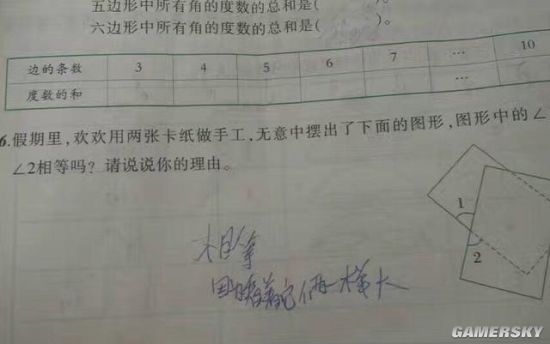 五边形中所有角的度数的总和是( )。
六边形中所有角的度数的总和是( )。
边的条数 3 4 5 6 7 … 10
度数的和 …
6.假期里,欢欢用两张卡纸做手工,无意中摆出了下面的图形,图形中的∠
∠2相等吗？请说说你的理由。
1
2
相等
因为看它俩一样大
GAMERSKY